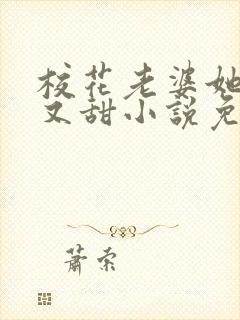 校花老婆她
又甜小説免
蕭索